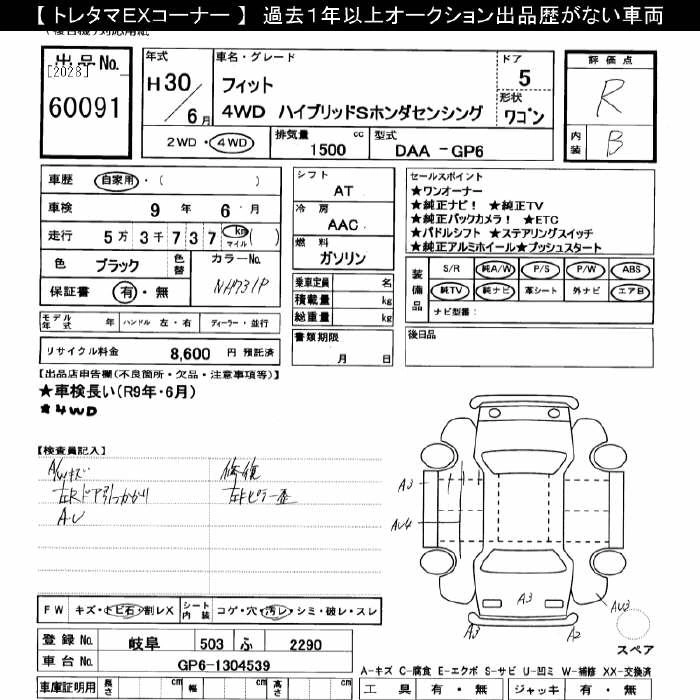 【 トレタマEXコーナー 】 過去1年以上オークション出品歴がない車両
出品No.
[2028]
60091
年式
H30
6月
車名・グレード
フィット
4WD ハイブリッドSホンダセンシング
ドア
5
形状
ワゴン
2WD・4WD
排気量
1500
cc
型式
DAA -GP6
評価点
R
内装
B
車歴
自家用・( )
車検
9 年 6 月
走行
5 万 3 千 7 3 7 km マイル ( )
色
ブラック
色替
カラーNo.
NH731P
保証書
有・無
シフト
AT
冷房
AAC
燃料
ガソリン
乗車定員 名
積載量 kg
総重量 kg
書類期限
月 日
セールスポイント
★ワンオーナー
★純正ナビ! ★純正TV
★純正バックカメラ! ★ETC
★パドルシフト ★ステアリングスイッチ
★純正アルミホイール★プッシュスタート
装備品
S/R 純A/W P/S P/W ABS
純TV 純ナビ 革シート 外ナビ エアB
ナビ型番:
後日品
モデル年式 年 ハンドル 左・右 ディーラー・並行
リサイクル料金 8,600 円 預託済
【出品店申告欄(不良箇所・欠品・注意事項等)】
★車検長い(R9年・6月)
★4WD
【検査員記入】
A/Wキズ
左Rドア引っかかり
A・U
修復
左Fピラー歪
A3
AU4
A3
AU3
A3
A2
スペア
FW キズ・トビ石・割レX シート内装 コゲ・穴・汚レ・シミ・破レ・スレ
登録No. 岐阜 503 ふ 2290
車台No. GP6-1304539
車庫証明用 長さ cm 幅 cm 高さ cm
A-キズ C-腐食 E-エクボ S-サビ U-凹ミ W-補修 XX-交換済
工具 有・無 ジャッキ 有・無